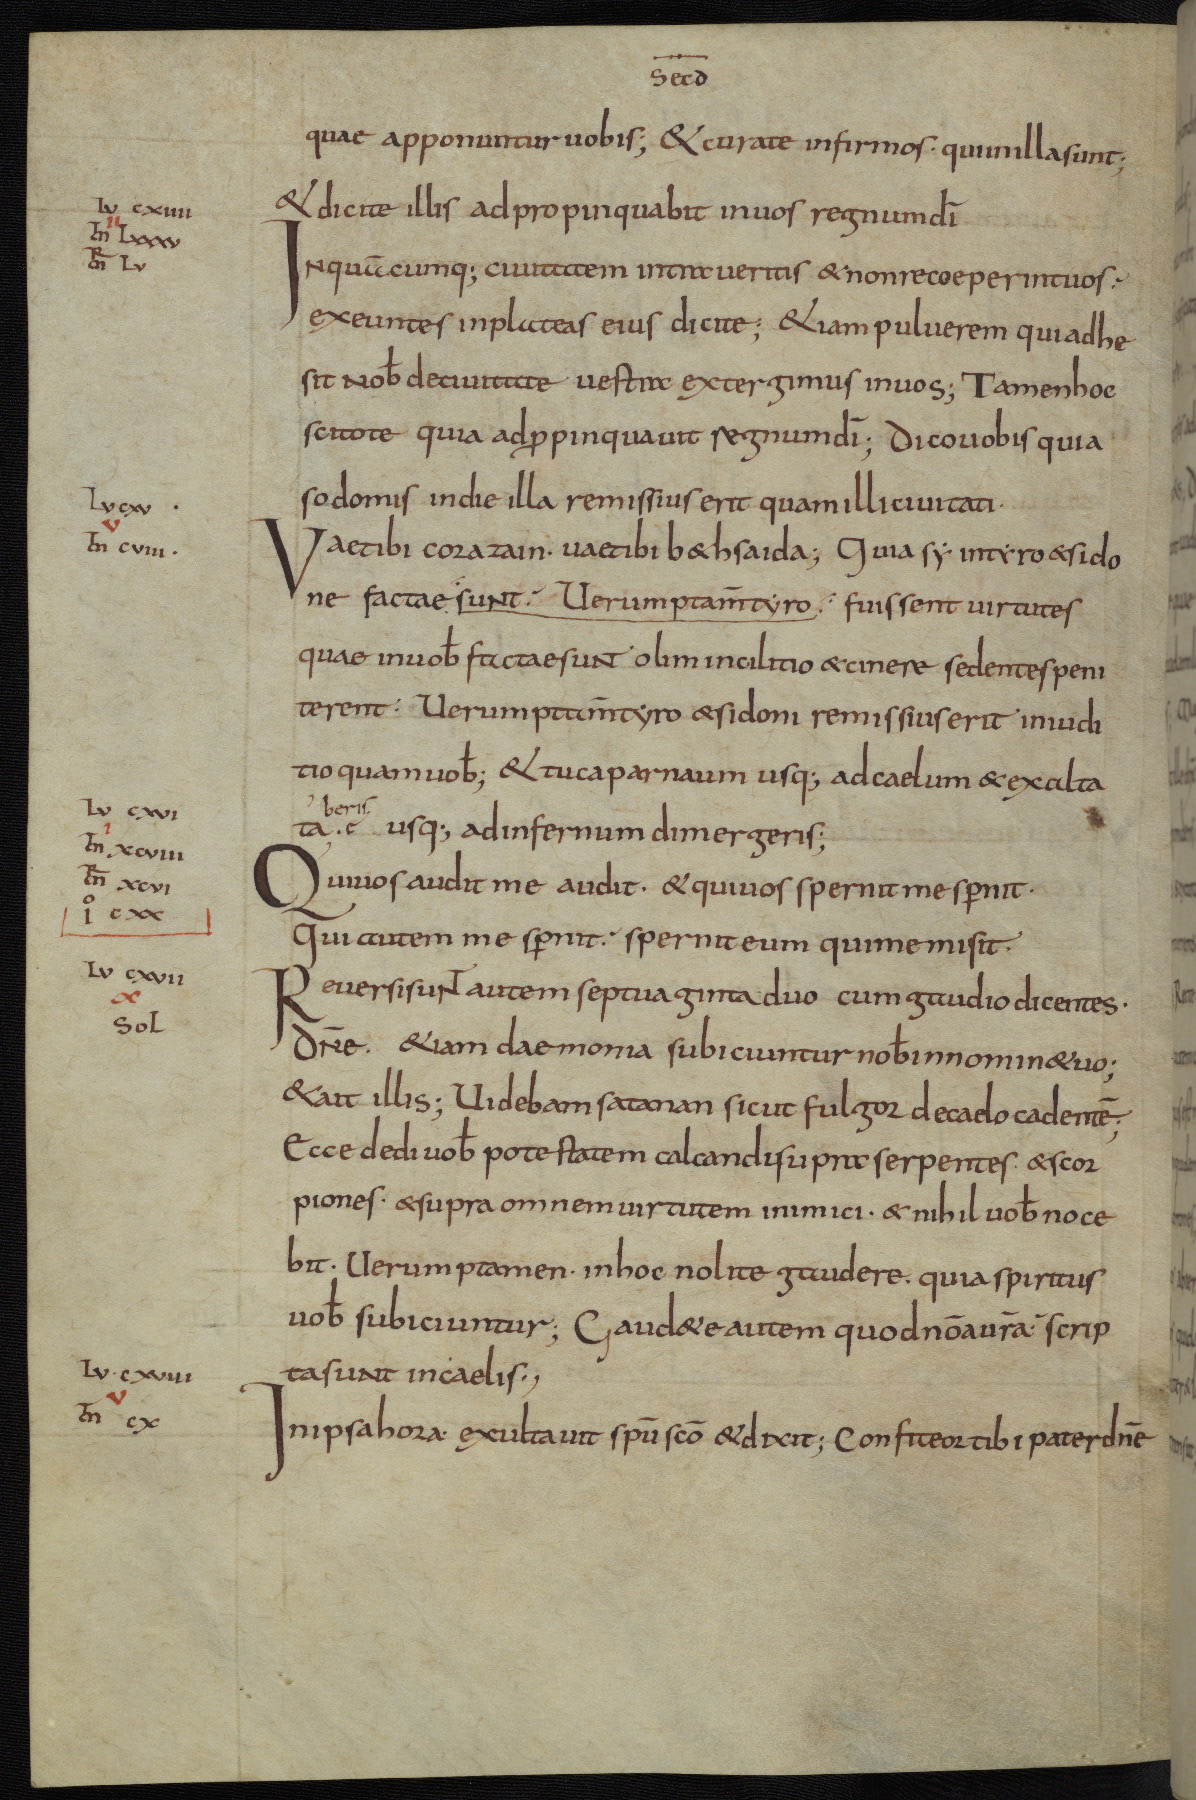 Secd
quae apponuntur uobis; & curate infirmos· qui in illa sunt;
& dicite illis adpropinquabit in uos regnum dī
Lu cxiiii
ii
m̄ Lxxxv
m̄r Lv
In quācumq; ciuitatem intraueritis & non recoeperint uos·
exeuntes in plateas eius dicite; &iam puluerem qui adhe
sit nob̄ de ciuitate uestra extergimus in uos; Tamen hoc
scitote quia adp̱pinquauit regnum dī; Dico uobis quia
sodomis in die illa remissius erit quam illi ciuitati·
Lu cxv ·
v
m̄ cviii·
Vae tibi corazain· uae tibi b&hsaida; Quia sy in tyro & sido
ne factae sunt· Uerumptam̄ tyro· fuissent uirtutes
quae in uob̄ factae sunt olim in cilitio & cinere sedentes peni
terent· Uerumptam̄ tyro & sidoni remissius erit in iudi
tio quam uob̄; & tu caparnaum usq; ad caelum & exalta
ta·c beris usq; ad infernum dimergeris;
Lu cxvi
i
m̄ xcviii
m̄r xcvi
io cxx
Qui uos audit me audit· & qui uos spernit me sp̱nit·
Qui autem me sp̱nit· spernit eum qui me misit·
Lu cxvii
x
SoL
Reuersi sunt autem septuaginta duo cum gaudio dicentes·
Dn̄e· &iam daemonia subiciuntur nob̄ in nomin& uo;
& ait illis; Uidebam satanan sicut fulgor de caelo cadentē;
Ecce dedi uob̄ potestatem calcandi supra serpentes· & scor
piones· & supra omnem uirtutem inimici· & nihil uob̄ noce
bit· Uerumptamen· in hoc nolite gaudere· quia spiritus
uob̄ subiciuntur; Gaud&e autem quod nōa ur̄a· scrip
ta sunt in caelis·,
Lu· cxviii
v
m̄ cx
In ipsa hora· exultauit spū scō & dixit; Confiteor tibi pater dn̄e